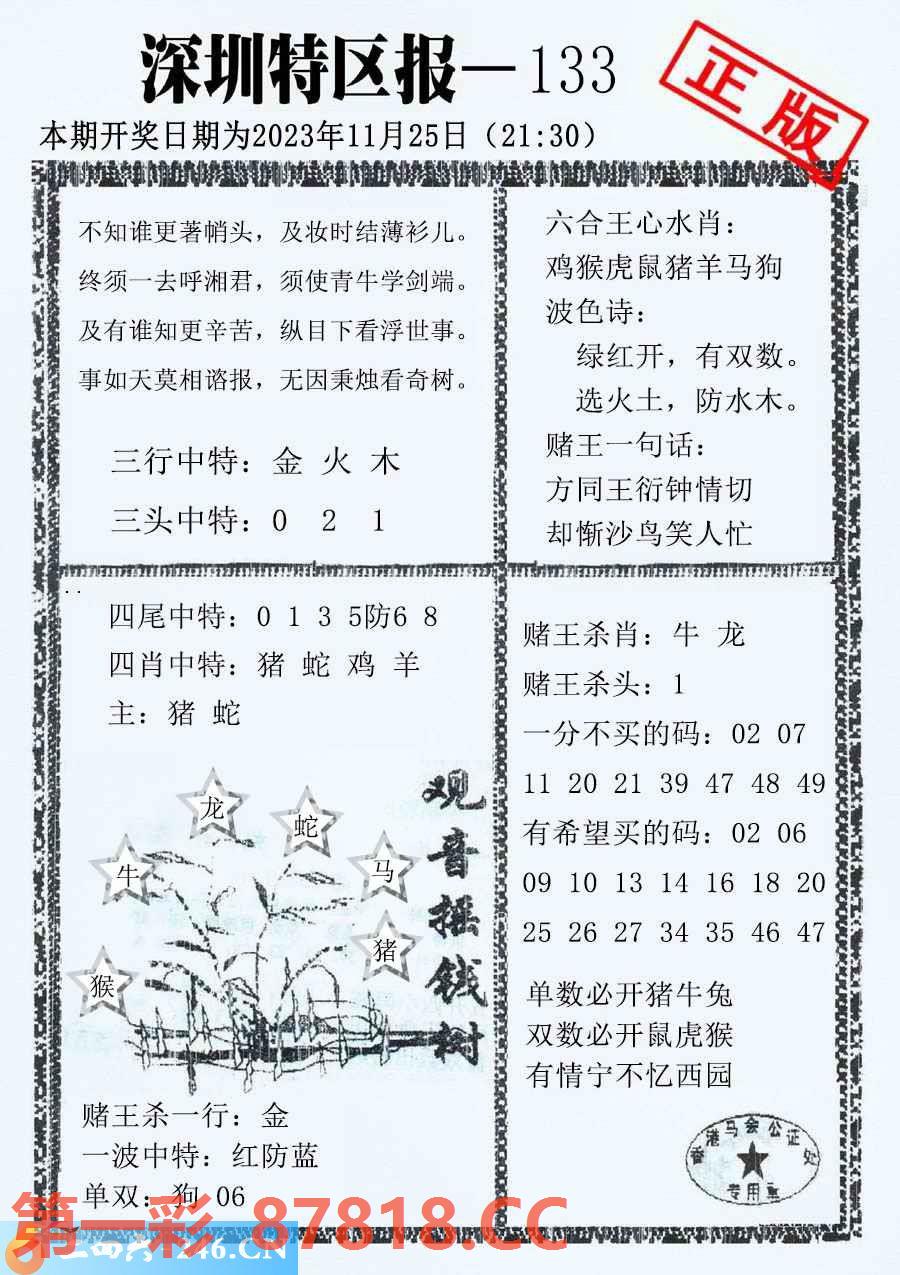 深圳特区报—133
正版
本期开奖日期为2023年11月25日（21:30）
不知谁更著帩头，及妆时结薄衫儿。
终须一去呼湘君，须使青牛学剑端。
及有谁知更辛苦，纵目下看浮世事。
事如天莫相谘报，无因秉烛看奇树。
三行中特：金 火 木
三头中特：0 2 1
六合王心水肖：
鸡猴虎鼠猪羊马狗
波色诗：
绿红开，有双数。
选火土，防水木。
赌王一句话：
方同王衍钟情切
却惭沙鸟笑人忙
四尾中特：0 1 3 5防6 8
四肖中特：猪 蛇 鸡 羊
主：猪 蛇
龙
蛇
牛
马
猪
猴
观音摇钱树
赌王杀一行：金
一波中特：红防蓝
单双：狗 06
赌王杀肖：牛 龙
赌王杀头：1
一分不买的码：02 07
11 20 21 39 47 48 49
有希望买的码：02 06
09 10 13 14 16 18 20
25 26 27 34 35 46 47
单数必开猪牛兔
双数必开鼠虎猴
有情宁不忆西园
香港马会公证处
专用章
第一彩 87818.CC
246.CN